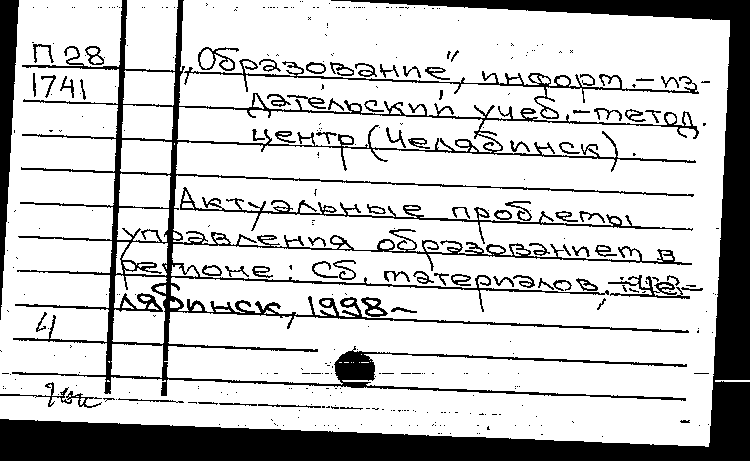 П 28
1741
„Образование“, информ.-из-
дательский учеб.-метод.
центр (Челябинск).
Актуальные проблемы
управления образованием в
регионе: Сб. материалов,-Че-
лябинск, 1998-
4